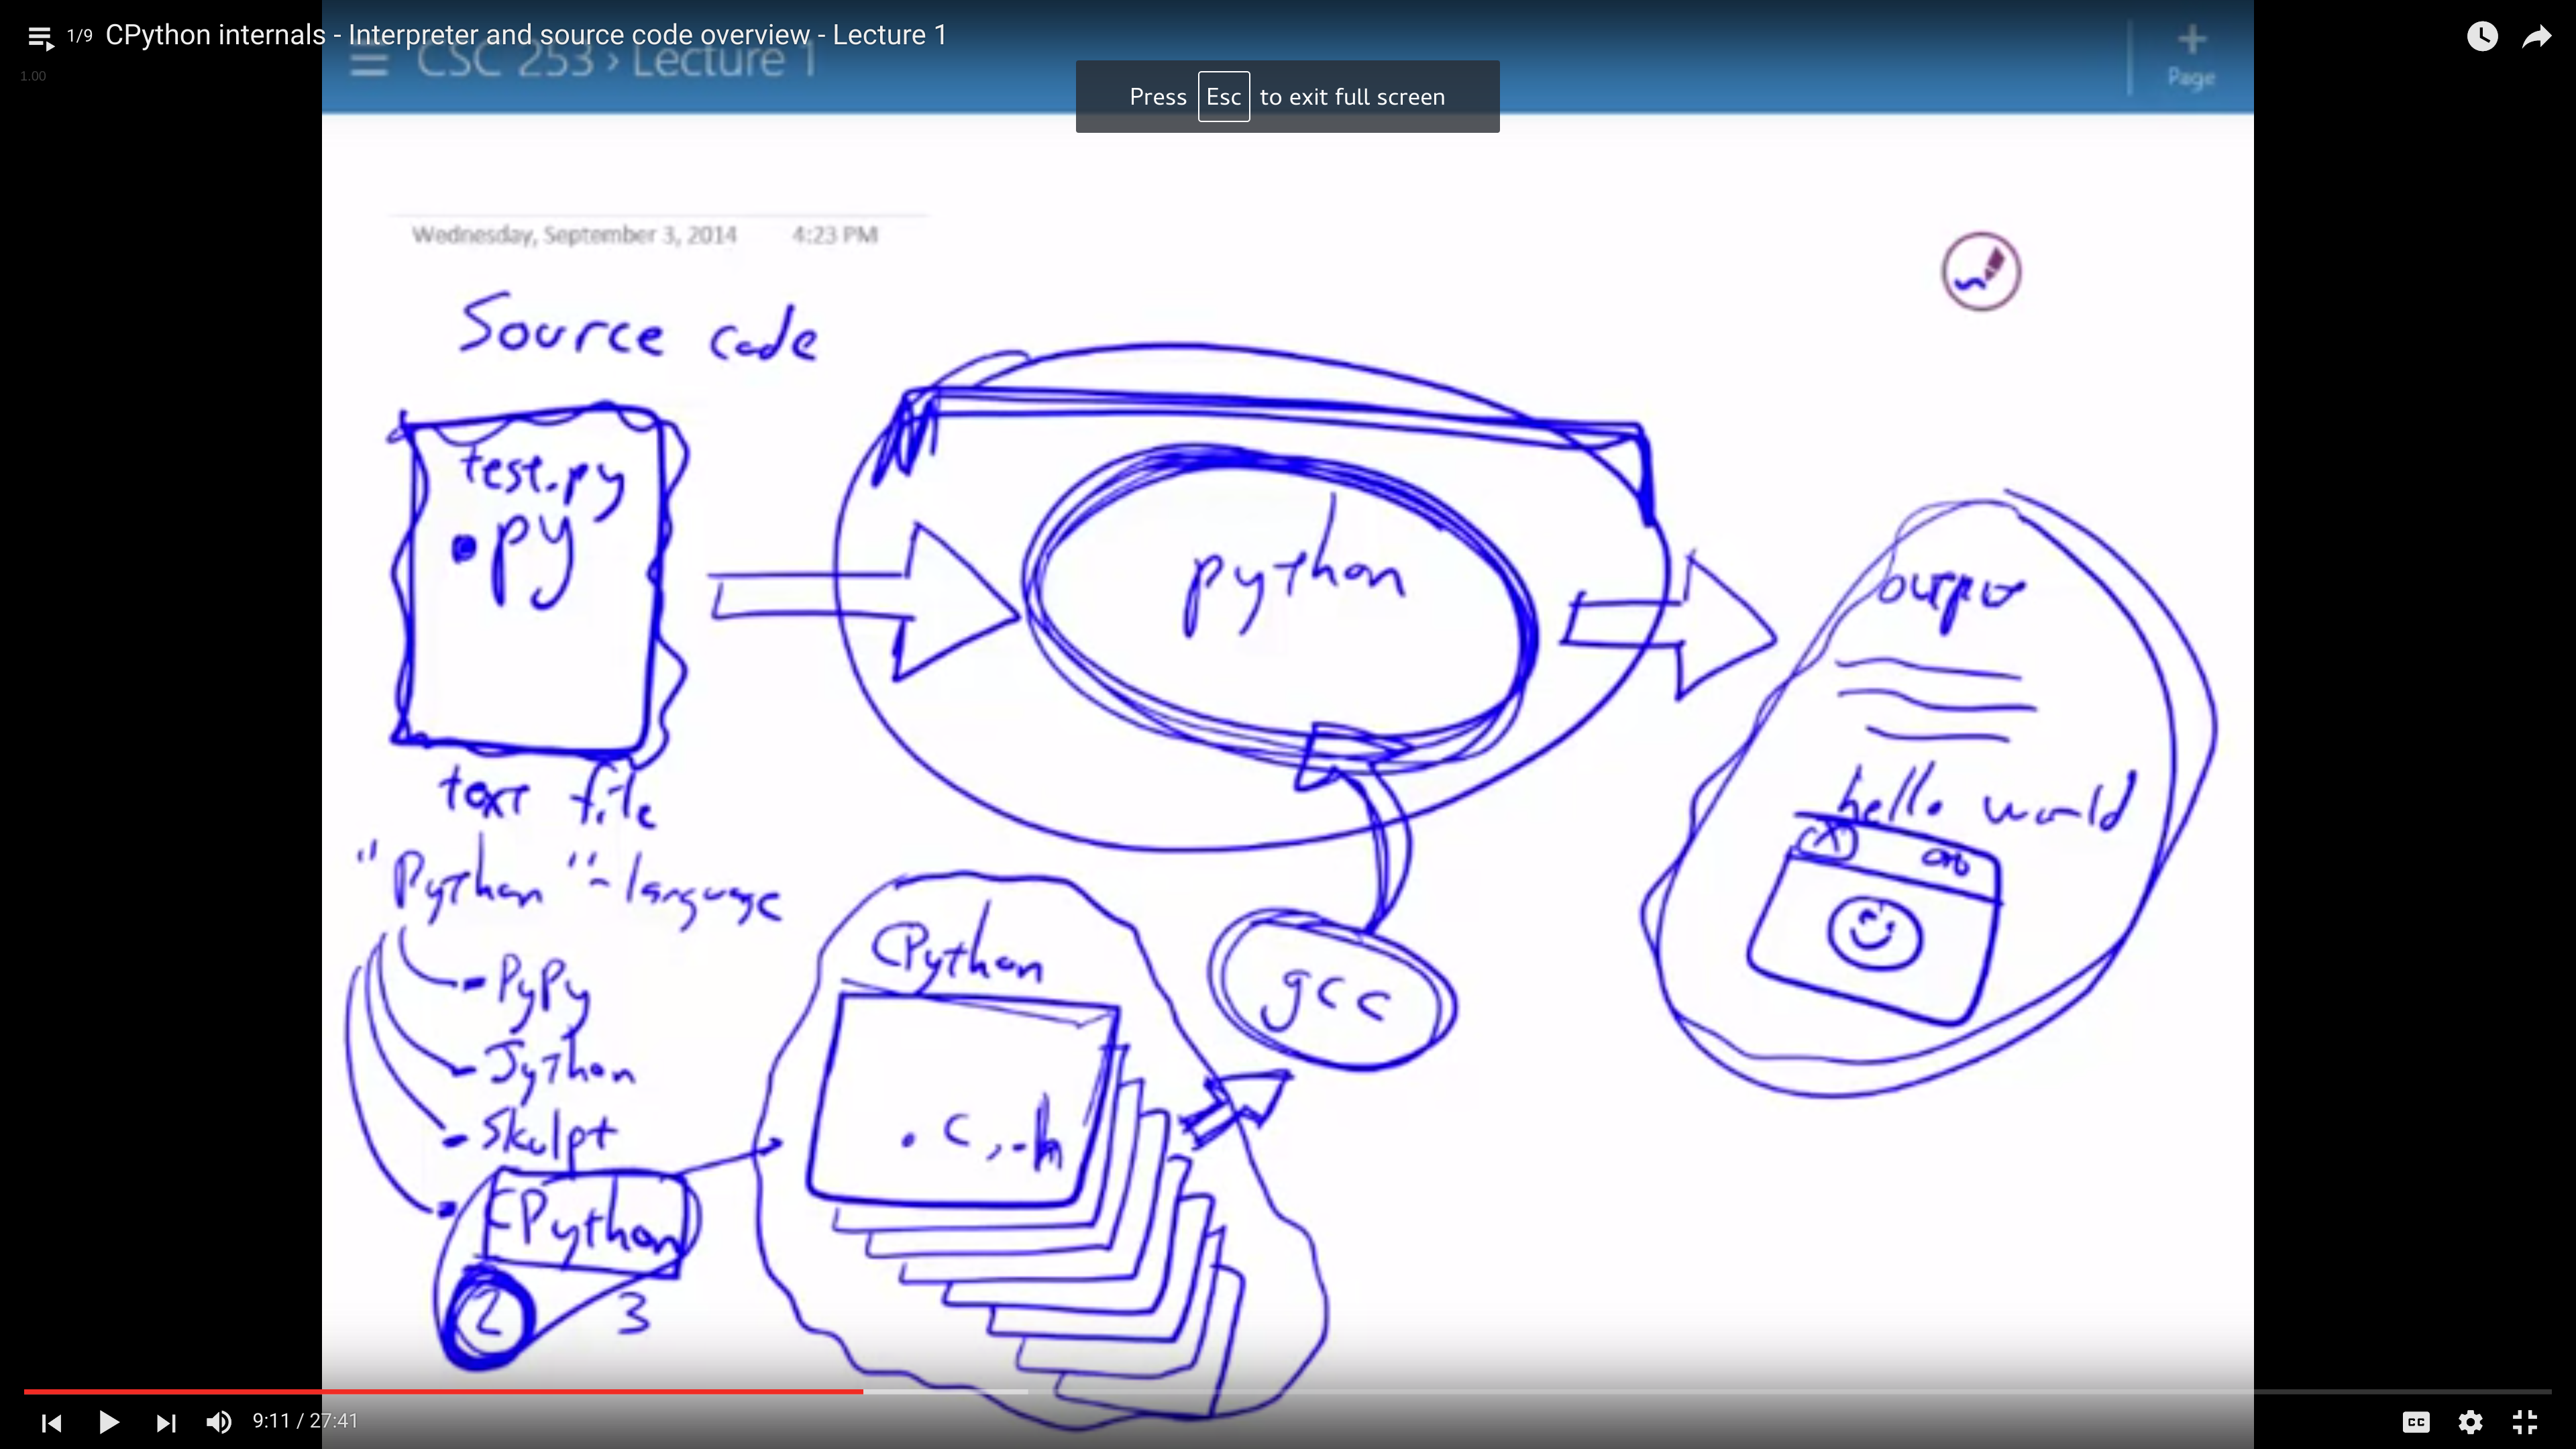 1/9 CPython internals - Interpreter and source code overview - Lecture 1
1.00
CSC 253 › Lecture 1
Page
Press Esc to exit full screen
Wednesday, September 3, 2014 4:23 PM
Source code
test.py
.py
text file
python
output
hello world
"Python" - language
- PyPy
- Jython
- Skulpt
- CPython
2 3
CPython
.c, .h
gcc
9:11 / 27:41
CC